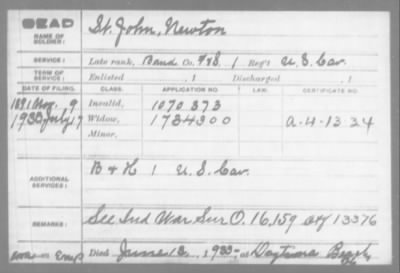 DEAD
NAME OF SOLDIER: St. John, Newton
SERVICE: Late rank, Band Co. F&S, 1 Reg't U.S. Cav.
TERM OF SERVICE: Enlisted , 1 Discharged , 1
DATE OF FILING. CLASS. APPLICATION NO. LAW. CERTIFICATE NO.
1891 9 Invalid, 1070373
1933 July 17 Widow, 1734300 A-4-13-34
Minor.
ADDITIONAL SERVICES: B & K 1 U.S. Cav.
REMARKS: See Ind War Sur O. 16,159 13376
Died June 13, 1933, at Daytona Beach